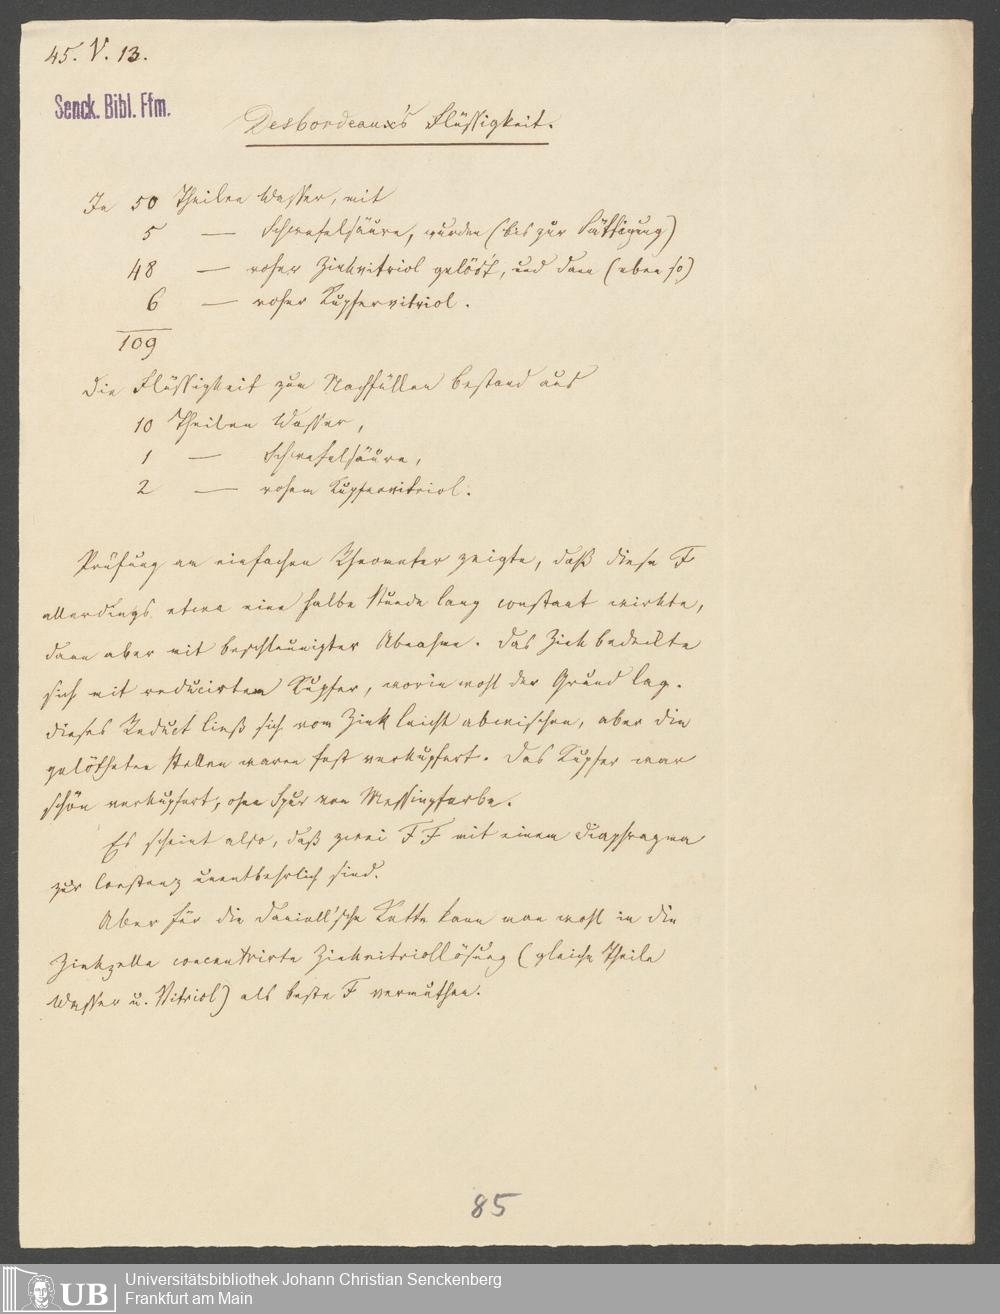 45. V. 13.
Senck. Bibl. Ffm.
Desbordeaux's Flüssigkeit.
In 50 Theilen Wasser, mit
5 — Schwefelsäure, wurden (bis zur Sättigung)
48 — roher Zinkvitriol gelöst, und dann (eben so)
6 — roher Kupfervitriol.
109
Die Flüssigkeit zum Nachfüllen bestand aus
10 Theilen Wasser,
1 — Schwefelsäure,
2 — rohem Kupfervitriol.
Prüfung am einfachen Rheometer zeigte, daß diese F
allerdings etwa eine halbe Stunde lang constant wirkte,
dann aber mit beschleunigter Abnahme. Das Zink bedeckte
sich mit reducirtem Kupfer, worin wohl der Grund lag.
Dieses Reduct ließ sich vom Zink leicht abwischen, aber die
gelötheten Stellen waren fest verkupfert. Das Kupfer war
schön verkupfert, ohne Spur von Messingfarbe.
Es scheint also, daß zwei FF mit einem Diaphragma
zur Constanz unentbehrlich sind.
Aber für die Daniell'sche Kette kann man wohl in die
Zinkzelle concentrirte Zinkvitriollösung (gleiche Theile
Wasser u. Vitriol) als beste F vermuthen.
85
UB
Universitätsbibliothek Johann Christian Senckenberg
Frankfurt am Main